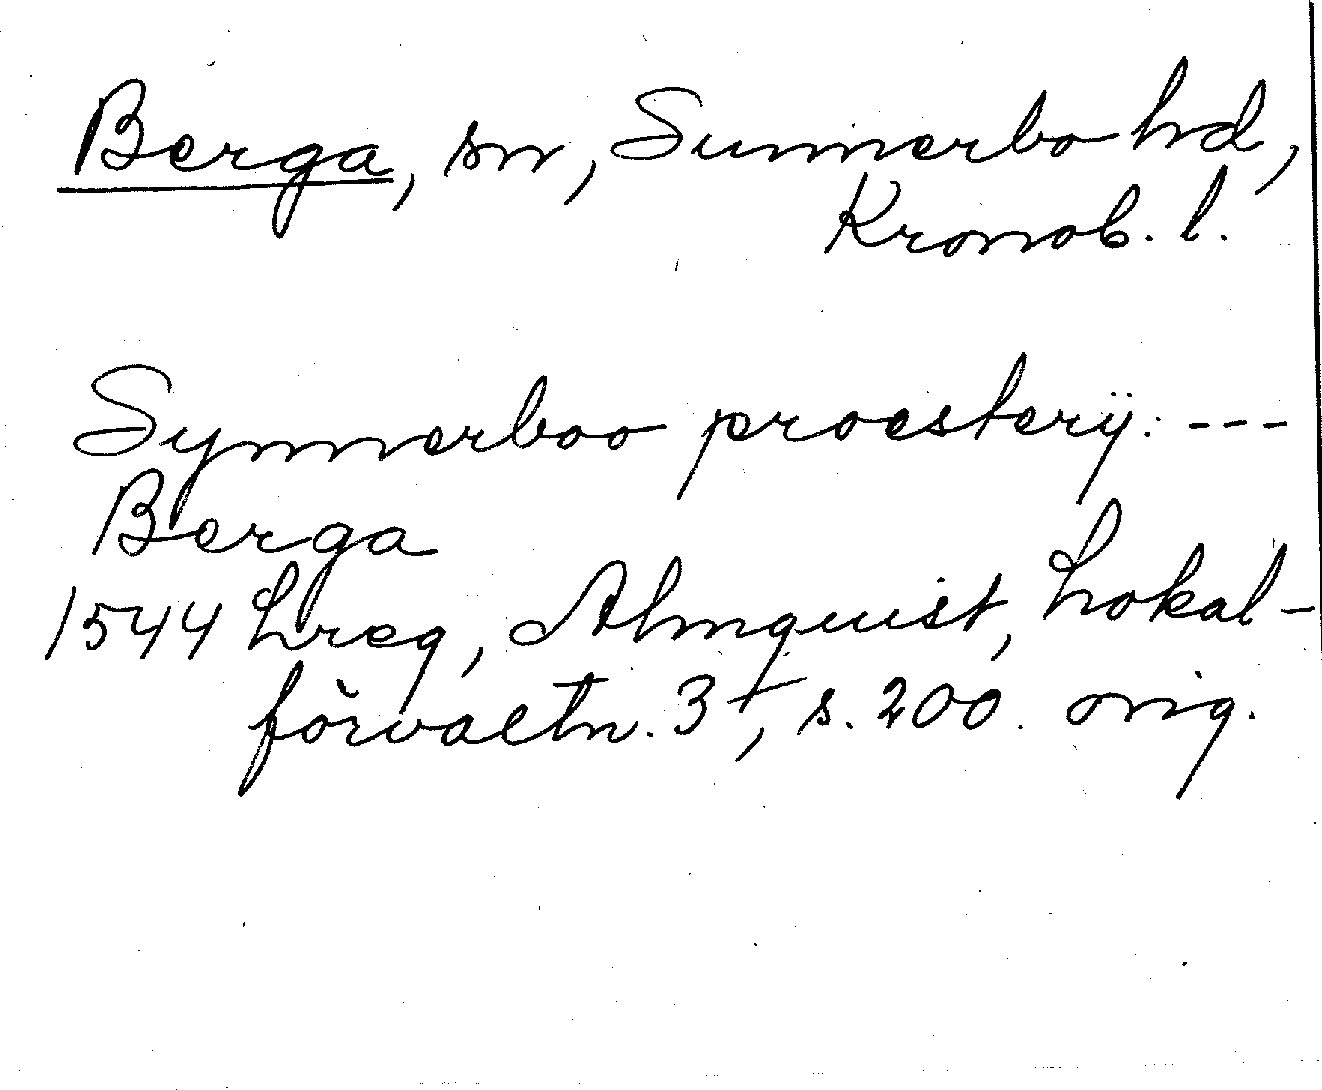 Berga, sn, Sunnerbo hd,
Kronob. l.
Synnerboo proesterÿ: ---
Berga
1544 Lreg, Almquist, Lokal-
förvaltn. 3†, s. 200. orig.